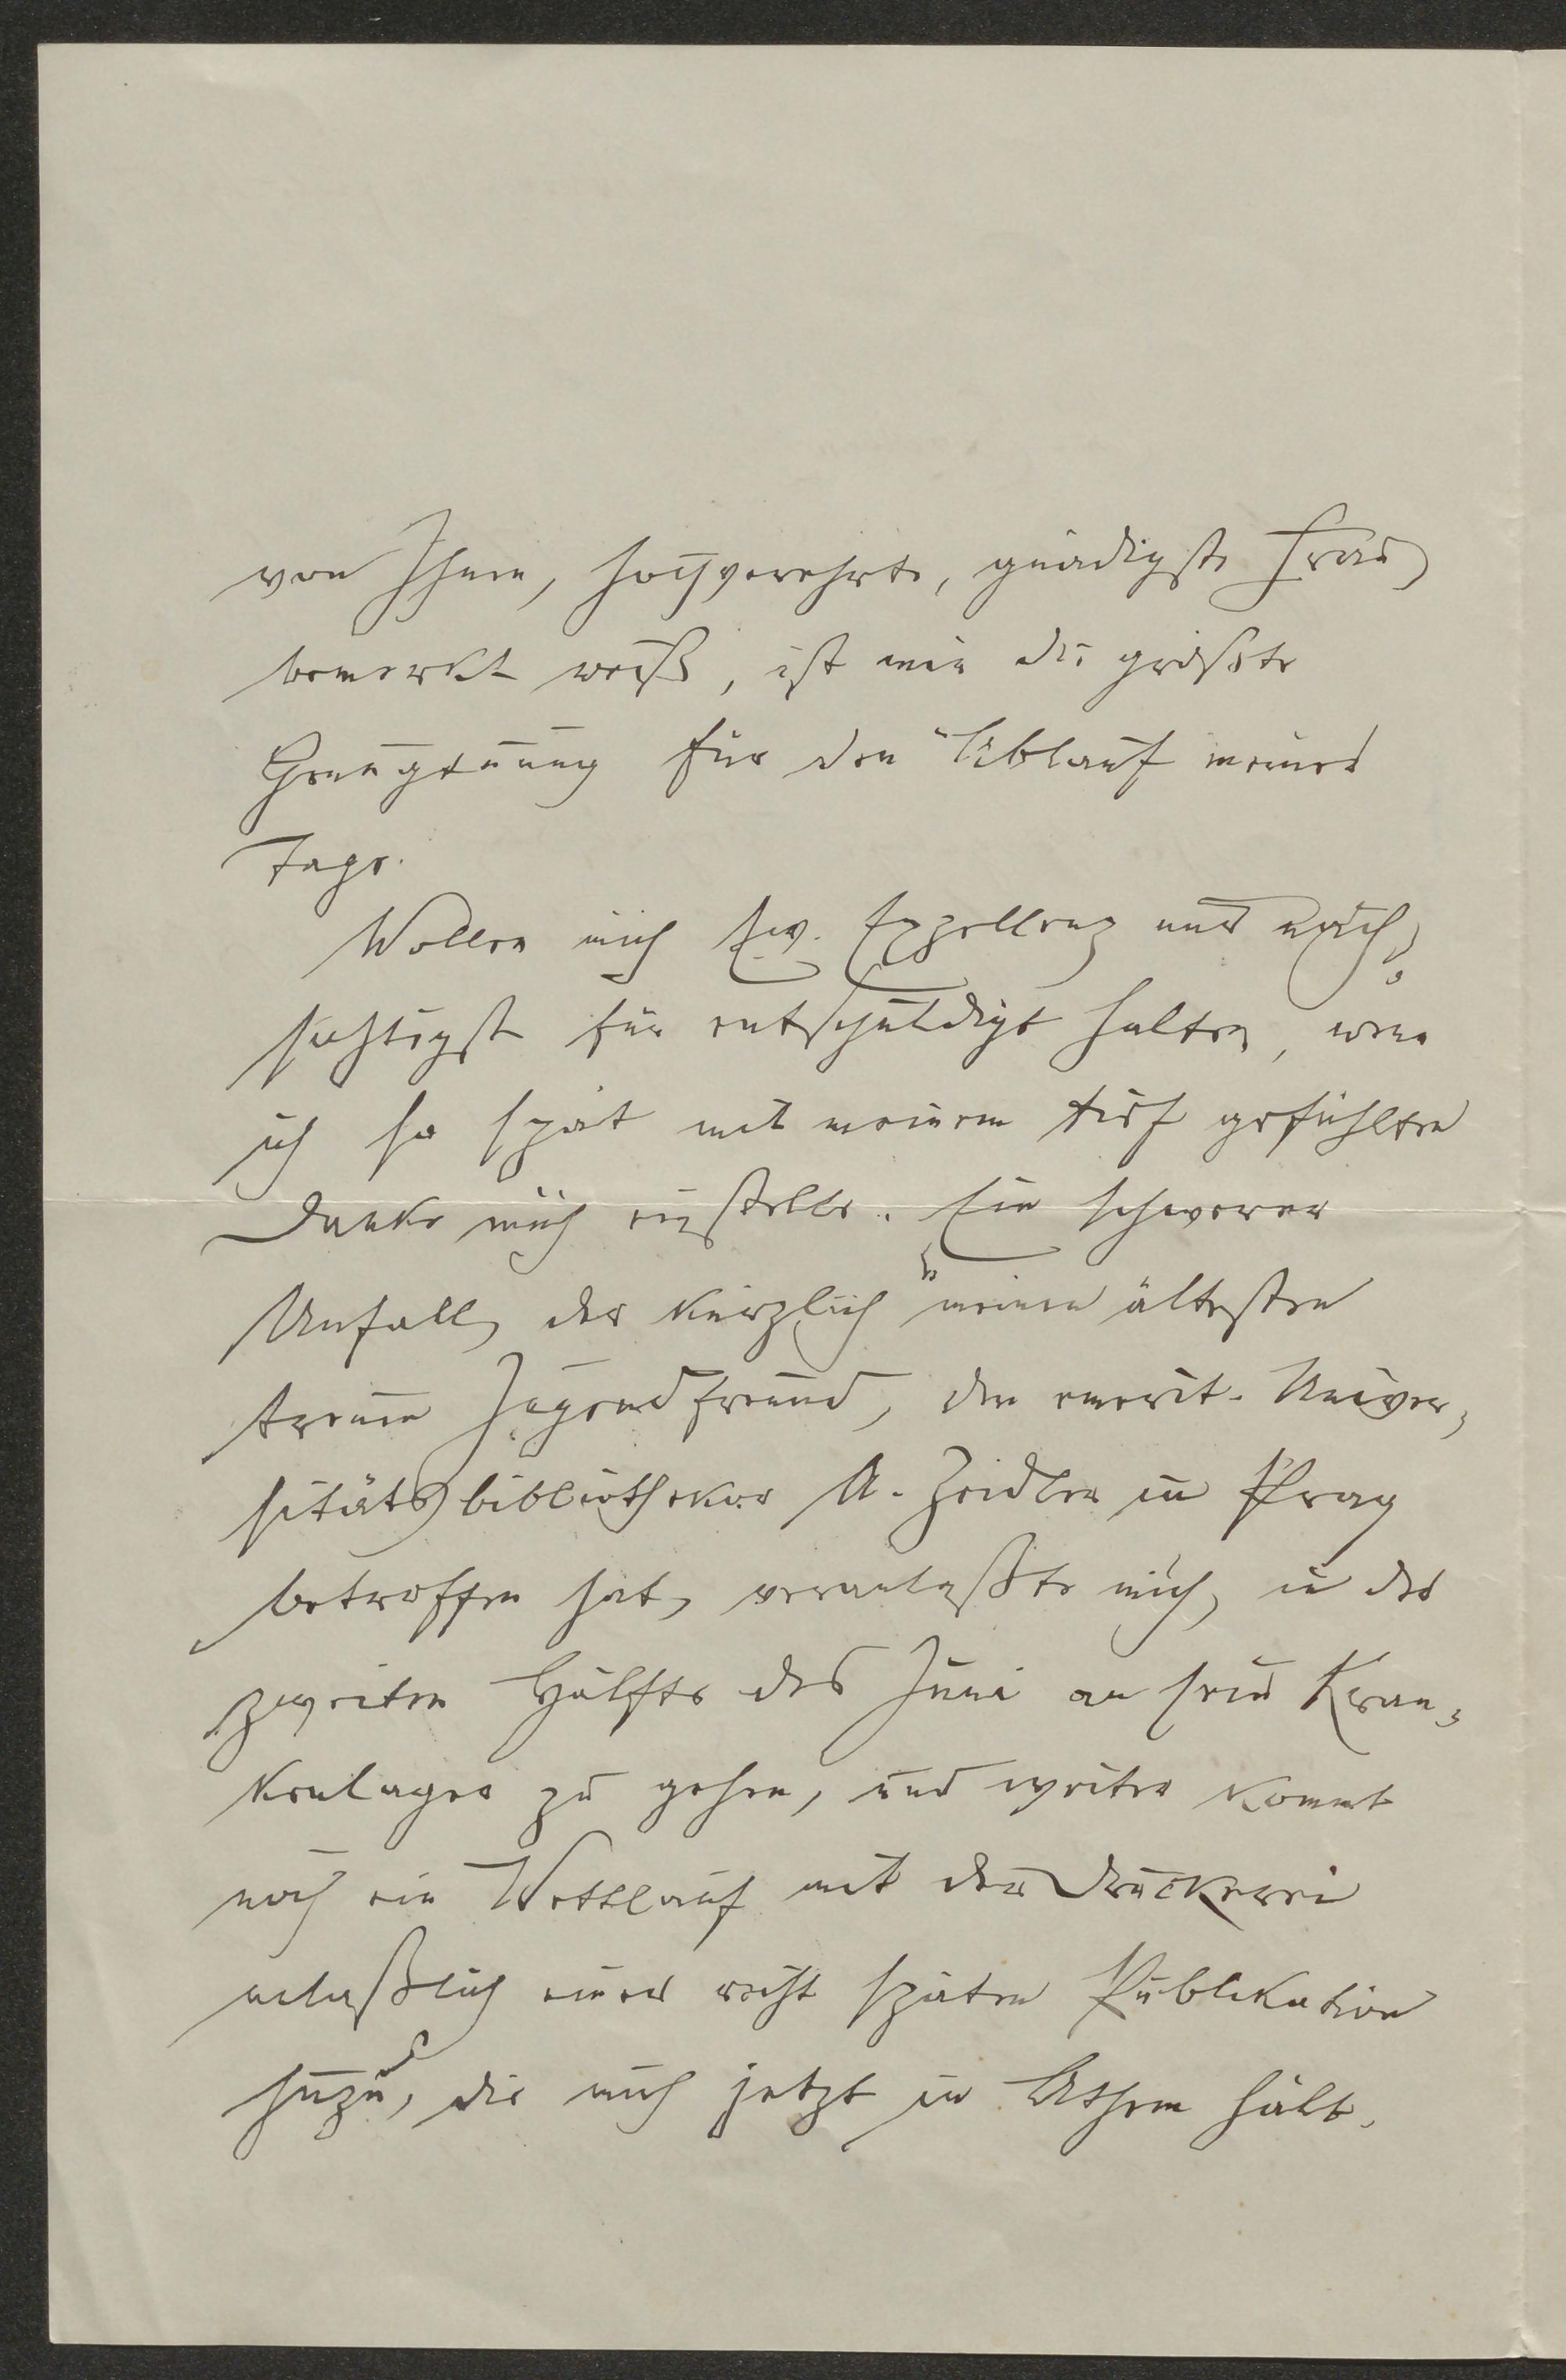 von Ihnen, hochverehrte, gnädigste Frau
bemerkt weiß, ist mir die größte
Genugtuung für den Ablauf meiner
Tage.
Wollen mich Ew. Exzellenz nur nach¬
sichtigst für entschuldigt halten, wenn
ich so spät mit meinem tief gefühlten
Danke mich einstelle. Ein schwerer
Unfall, der kürzlich meinen ältesten
treuen Jugendfreund, den emerit. Univer¬
sitätsbibliothekar A. Zeidler in Prag
betroffen hat, veranlaßte mich, in der
zweiten Hälfte des Juni an sein Kran¬
kenlager zu gehen, und weiter kommt
noch ein Wettlauf mit der Druckerei
anlaßlich einer recht späten Publikation
hinzu, die mich jetzt in Athem hält.